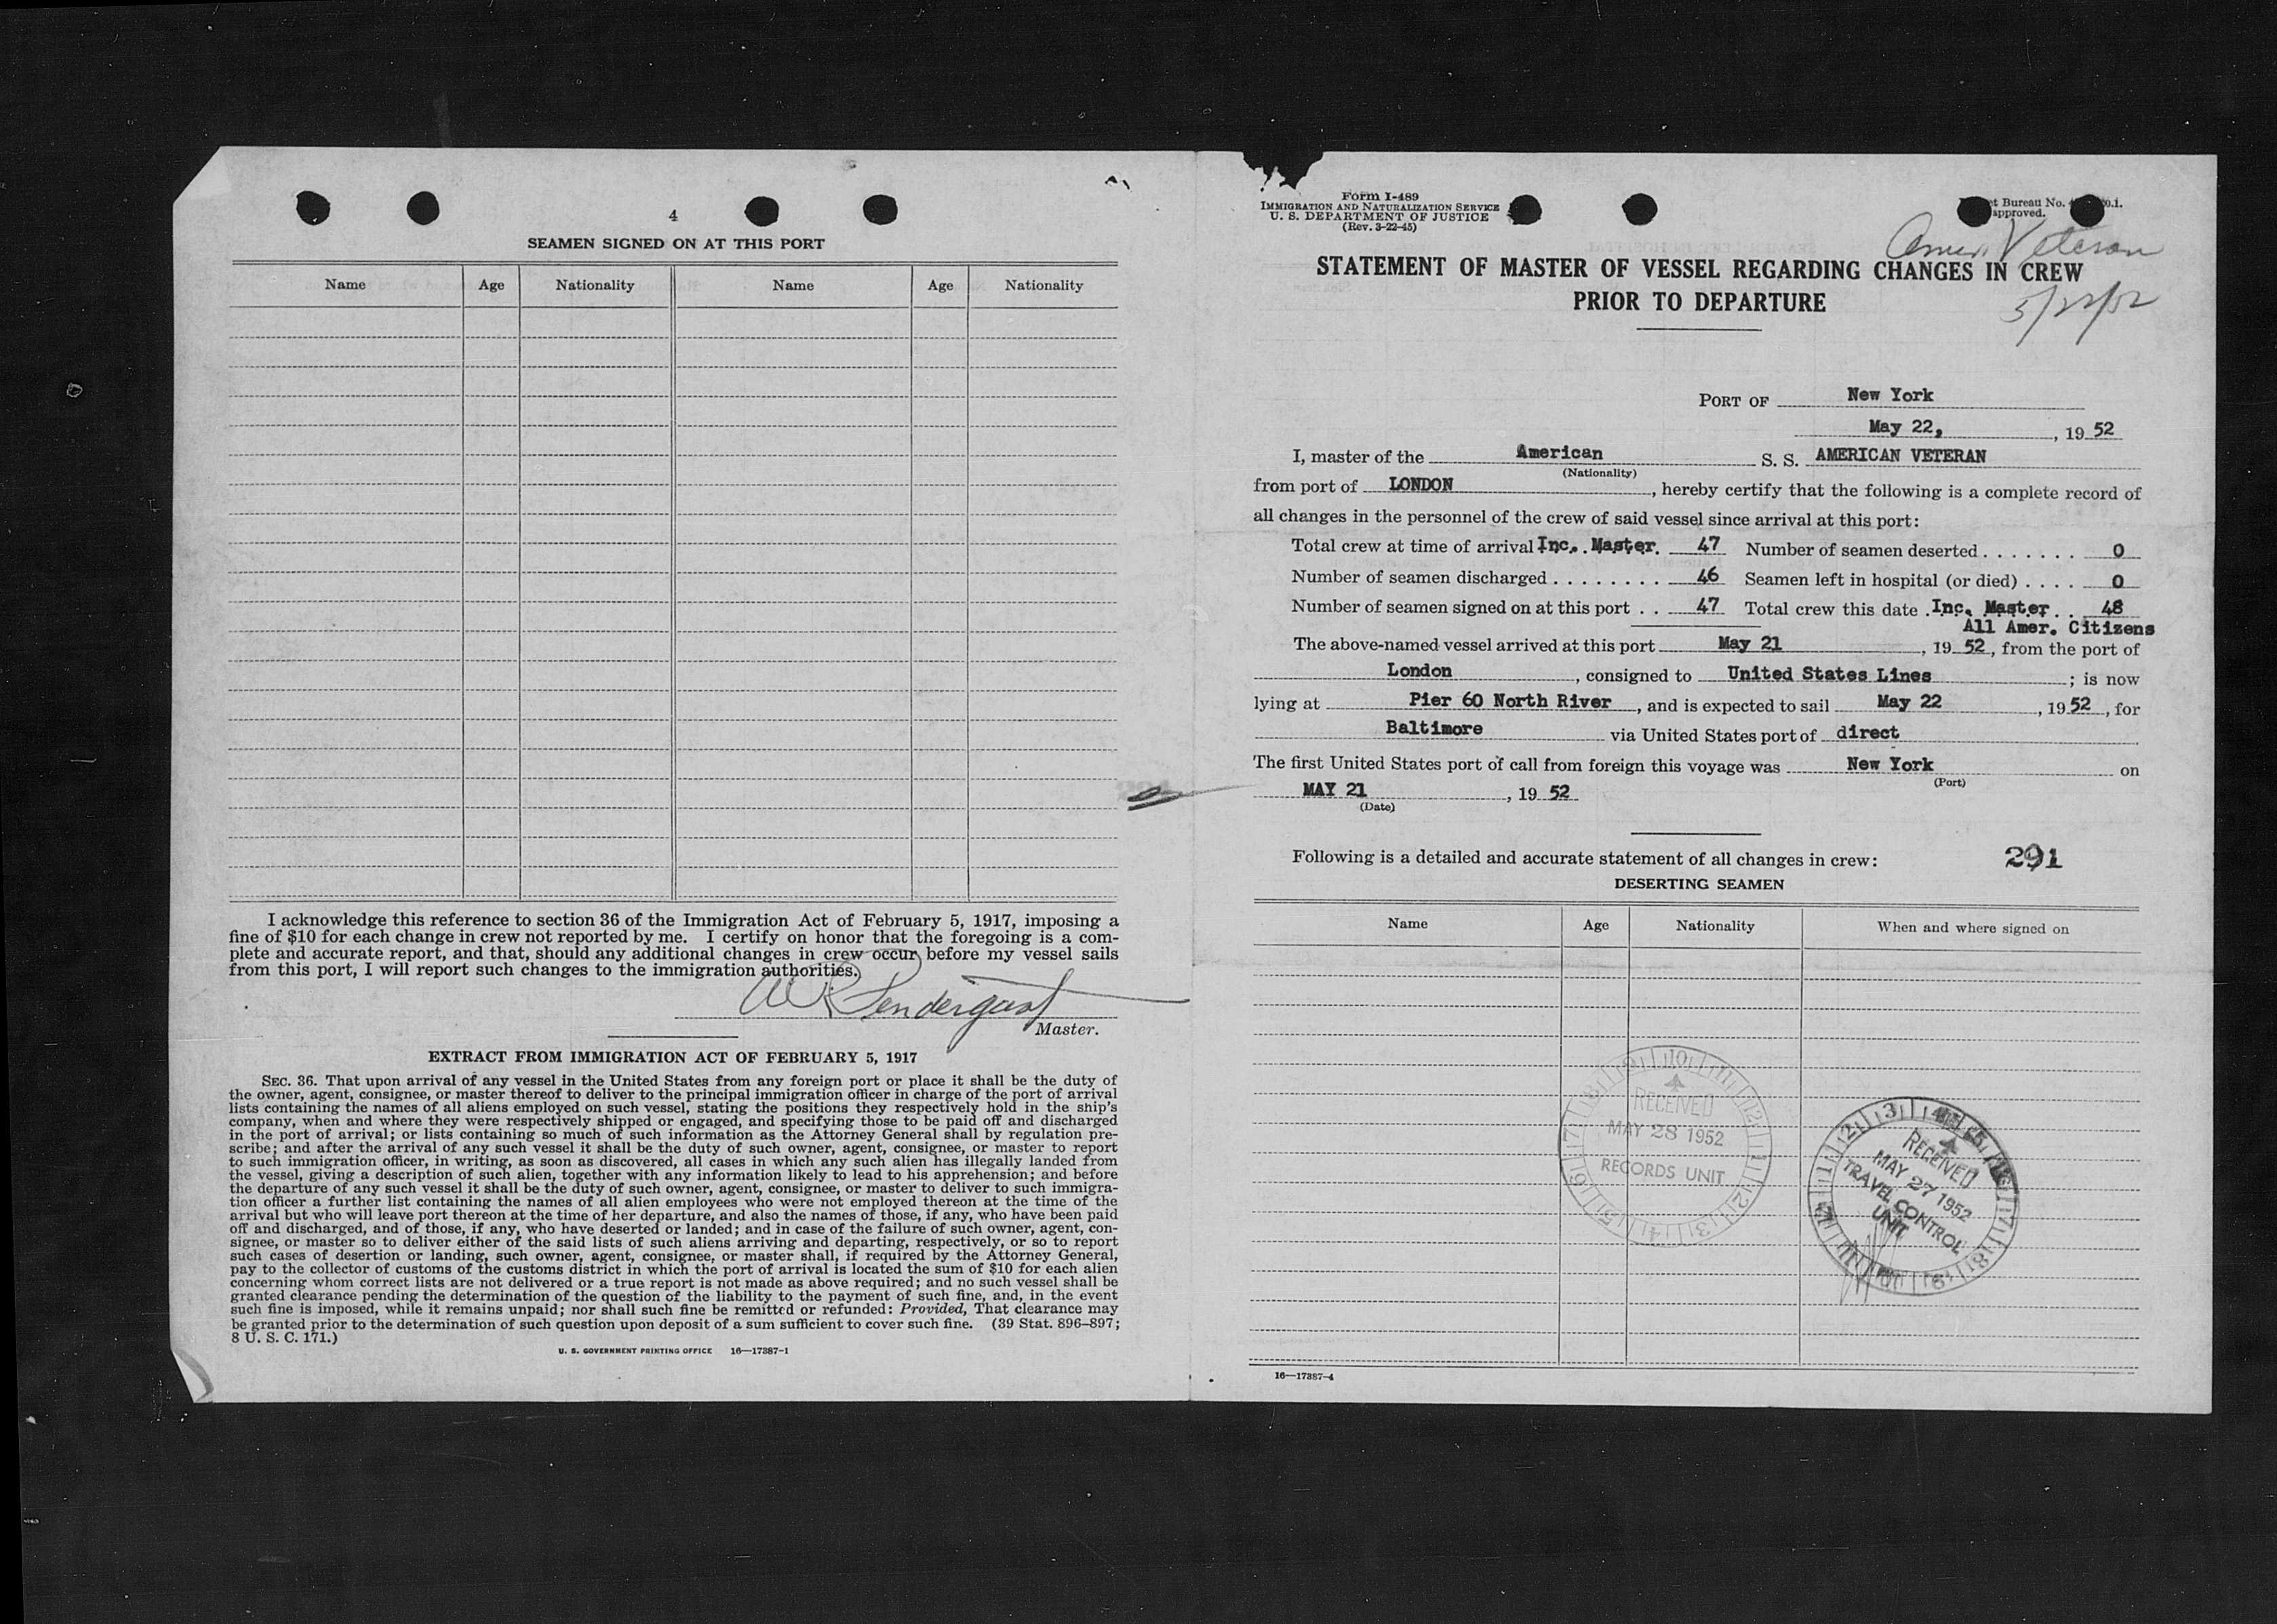 4
SEAMEN SIGNED ON AT THIS PORT
Name Age Nationality Name Age Nationality
I acknowledge this reference to section 36 of the Immigration Act of February 5, 1917, imposing a
fine of $10 for each change in crew not reported by me. I certify on honor that the foregoing is a com-
plete and accurate report, and that, should any additional changes in crew occur before my vessel sails
from this port, I will report such changes to the immigration authorities.
WR Pendergast
Master.
EXTRACT FROM IMMIGRATION ACT OF FEBRUARY 5, 1917
SEC. 36. That upon arrival of any vessel in the United States from any foreign port or place it shall be the duty of
the owner, agent, consignee, or master thereof to deliver to the principal immigration officer in charge of the port of arrival
lists containing the names of all aliens employed on such vessel, stating the positions they respectively hold in the ship's
company, when and where they were respectively shipped or engaged, and specifying those to be paid off and discharged
in the port of arrival; or lists containing so much of such information as the Attorney General shall by regulation pre-
scribe; and after the arrival of any such vessel it shall be the duty of such owner, agent, consignee, or master to report
to such immigration officer, in writing, as soon as discovered, all cases in which any such alien has illegally landed from
the vessel, giving a description of such alien, together with any information likely to lead to his apprehension; and before
the departure of any such vessel it shall be the duty of such owner, agent, consignee, or master to deliver to such immigra-
tion officer a further list containing the names of all alien employees who were not employed thereon at the time of the
arrival but who will leave port thereon at the time of her departure, and also the names of those, if any, who have been paid
off and discharged, and of those, if any, who have deserted or landed; and in case of the failure of such owner, agent, con-
signee, or master so to deliver either of the said lists of such aliens arriving and departing, respectively, or so to report
such cases of desertion or landing, such owner, agent, consignee, or master shall, if required by the Attorney General,
pay to the collector of customs of the customs district in which the port of arrival is located the sum of $10 for each alien
concerning whom correct lists are not delivered or a true report is not made as above required; and no such vessel shall be
granted clearance pending the determination of the question of the liability to the payment of such fine, and, in the event
such fine is imposed, while it remains unpaid; nor shall such fine be remitted or refunded: Provided, That clearance may
be granted prior to the determination of such question upon deposit of a sum sufficient to cover such fine. (39 Stat. 896–897;
8 U. S. C. 171.)
U. S. GOVERNMENT PRINTING OFFICE 16—17387-1
Form I-489
IMMIGRATION AND NATURALIZATION SERVICE
U. S. DEPARTMENT OF JUSTICE
(Rev. 3-22-45)
Bureau No.
approved.
Amer. Veteran
STATEMENT OF MASTER OF VESSEL REGARDING CHANGES IN CREW
PRIOR TO DEPARTURE
5/22/52
PORT OF New York
May 22, , 19 52
I, master of the American S. S. AMERICAN VETERAN
(Nationality)
from port of LONDON , hereby certify that the following is a complete record of
all changes in the personnel of the crew of said vessel since arrival at this port:
Total crew at time of arrival Inc. Master. 47 Number of seamen deserted . . . . . . . 0
Number of seamen discharged . . . . . . . . 46 Seamen left in hospital (or died) . . . . 0
Number of seamen signed on at this port . . 47 Total crew this date . Inc. Master . . 48
All Amer. Citizens
The above-named vessel arrived at this port May 21 , 19 52 , from the port of
London , consigned to United States Lines ; is now
lying at Pier 60 North River , and is expected to sail May 22 , 19 52 , for
Baltimore via United States port of direct
The first United States port of call from foreign this voyage was New York on
(Port)
MAY 21 , 19 52
(Date)
Following is a detailed and accurate statement of all changes in crew: 291
DESERTING SEAMEN
Name Age Nationality When and where signed on
RECEIVED
MAY 28 1952
RECORDS UNIT
RECEIVED
MAY 27 1952
TRAVEL CONTROL
UNIT
16—17387-4